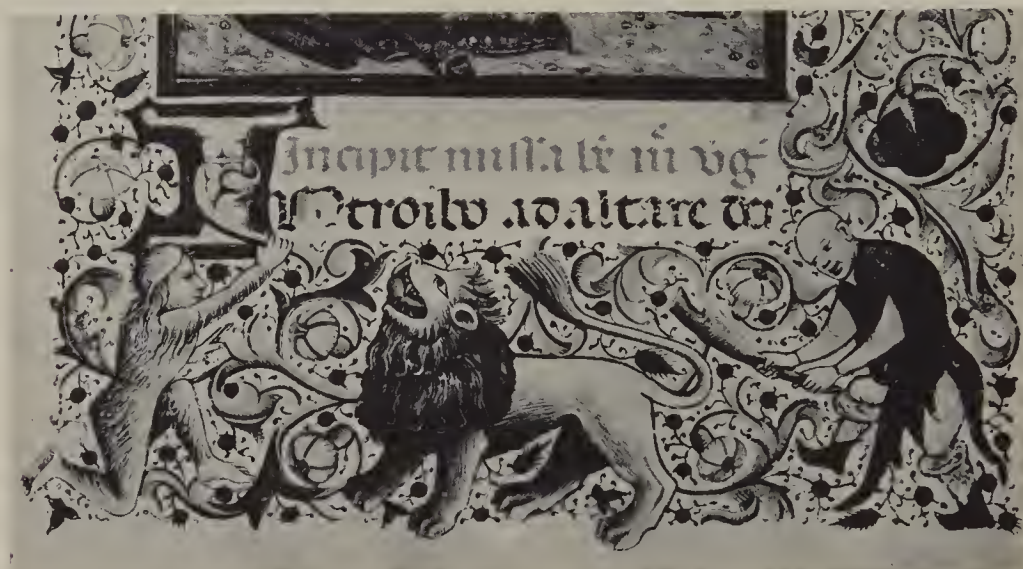 Incipit missale
Introibo ad altare